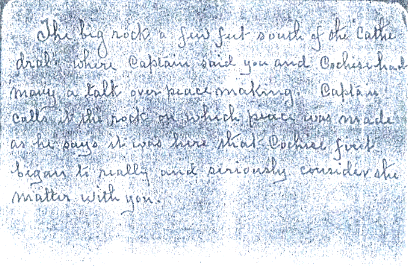 The big rock a few feet south of the "Cathe
dral" where Captain said you and Cochise had
many a talk over peace making. Captain
calls it the rock on which peace was made
as he says it was here that Cochise first
began to really and seriously consider the
matter with you.